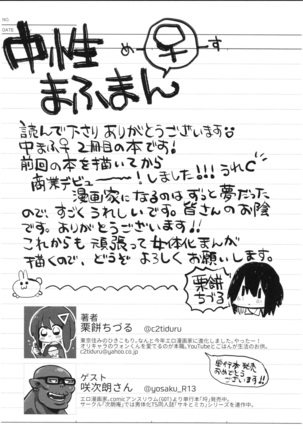 NO.
DATE
中性
め♀す
まふまん
読んで下さり ありがとうございます
中まふ♀ 2冊目の本です!
前回の本を描いてから
商業デビュー〜〜!しました!!!うれC
漫画家になるのはずっと夢だった
ので、すごくうれしいです。皆さんのお陰
です。ありがとうございます!!
これからも 頑張って女体化まんが
描くので、どうぞ よろしく お願いします。
栗餅
ちづる
著者
栗餅ちづる @c2tiduru
東京住みのひきこもり。なんと今年エロ漫画家に進化しました。やったー!
オリキャラのウォンくんを愛でるのが本職。YouTubeとごはんが生活のお供。
c2tiduru@yahoo.co.jp
ゲスト
咲次朗さん @yosaku_R13
エロ漫画家。comicアンスリウム(GOT)より単行本「時」発売中。
サークル「次朗庵」では男体化TS同人誌「サキとミカ」シリーズを連作中。
単行本発売
おめでとう
ございます!!